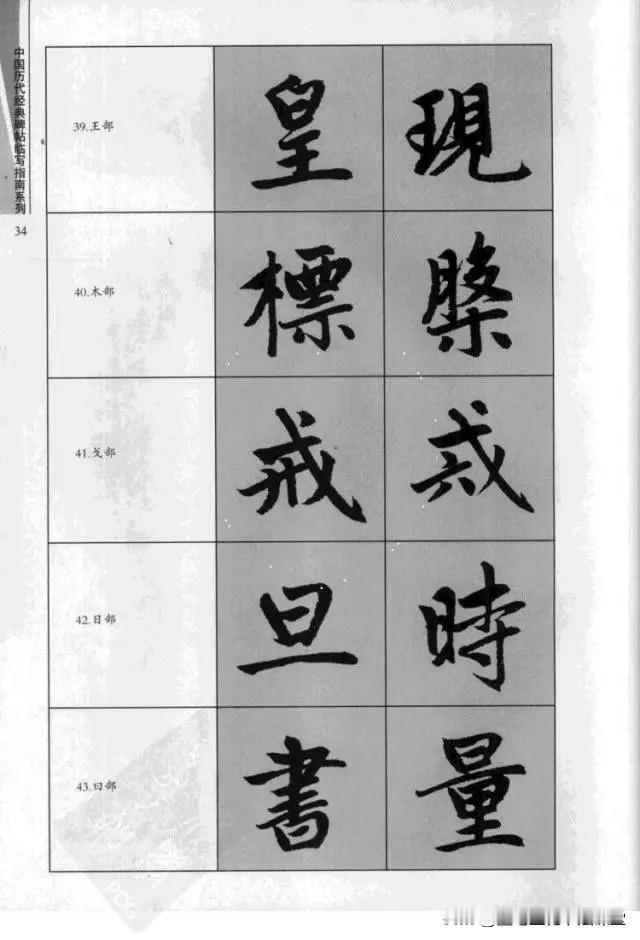 中国历代经典碑帖临写指南系列
34
39.王部
皇 現
40.木部
標
41.戈部
戒
42.日部
旦 時
43.曰部
書 量
PDG